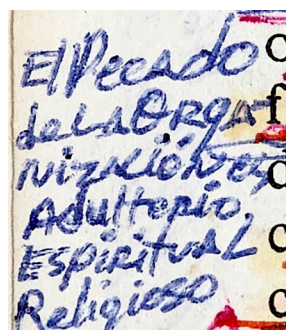 El Pecado
de La Orga-
nización es
Adulterio,
Espiritual
Religioso